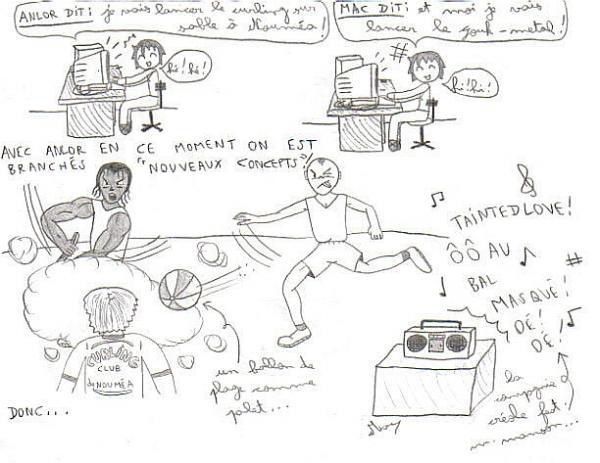 ANLOR DIT: je vais lancer le curling sur
sable à Nouméa!
hi! hi!
MAC DIT: et moi je vais
lancer le zouk-metal!
hi! hi!
AVEC ANLOR EN CE MOMENT ON EST
BRANCHÉS "NOUVEAUX CONCEPTS":
TAINTED LOVE!
ÔÔ AU
BAL
MASQUÉ!
DÉ!
DÉ!
CURLING
CLUB
de NOUMÉA
un ballon de
plage comme
palet...
la
compagnie
créole feat.
m. manson...
DONC...